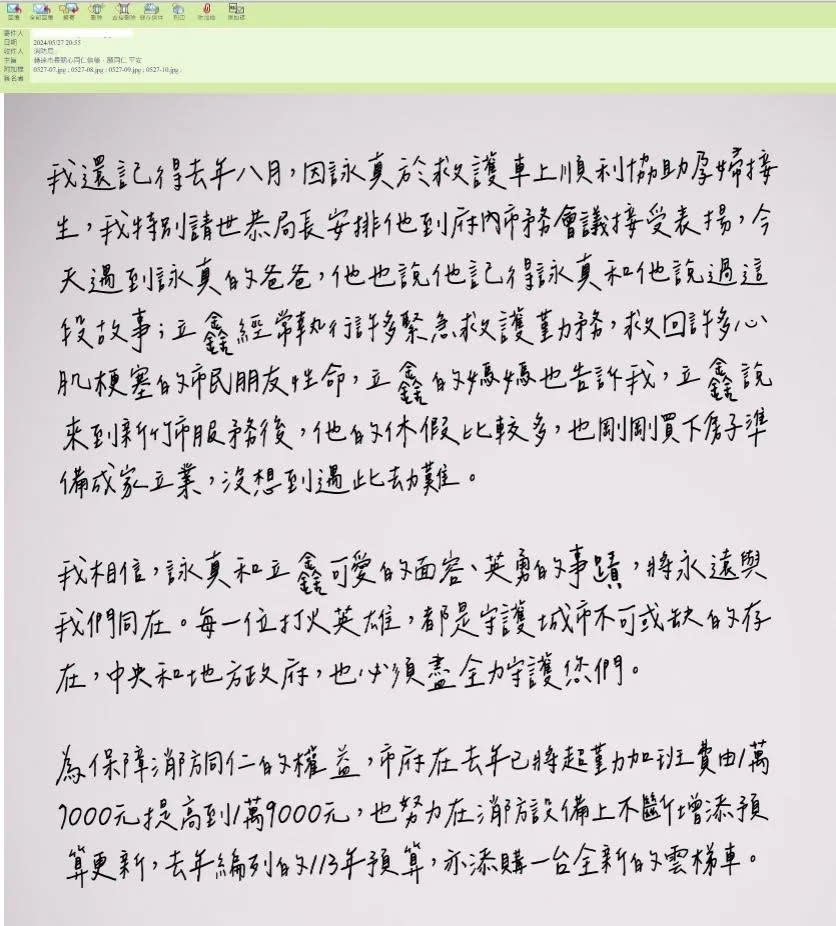 回覆 全部回覆 轉寄 刪除 直接刪除 儲存信件 列印
寄件人
日期 2024/05/27 20:55
收件人 消防局
主旨 轉達市長關心同仁信箋,願同仁平安
附加檔 0527-07.jpg ; 0527-08.jpg ; 0527-09.jpg ; 0527-10.jpg ;
簽名者
我還記得去年八月,因詠真於救護車上順利協助孕婦接
生,我特別請世恭局長安排他到府內市務會議接受表揚,今
天遇到詠真的爸爸,他也說他記得詠真和他說過這
段故事;立鑫經常執行許多緊急救護勤務,救回許多心
肌梗塞的市民朋友性命,立鑫的媽媽也告訴我,立鑫說
來到新竹市服務後,他的休假比較多,也剛剛買下房子準
備成家立業,沒想到遇此劫難。
我相信,詠真和立鑫可愛的面容、英勇的事蹟,將永遠與
我們同在。每一位打火英雄,都是守護城市不可或缺的存
在,中央和地方政府,也必須盡全力守護您們。
為保障消防同仁的權益,市府在去年已將超勤加班費由1萬
7000元提高到1萬9000元,也努力在消防設備上不斷增添預
算更新,去年編列的113年預算,亦添購一台全新的雲梯車。